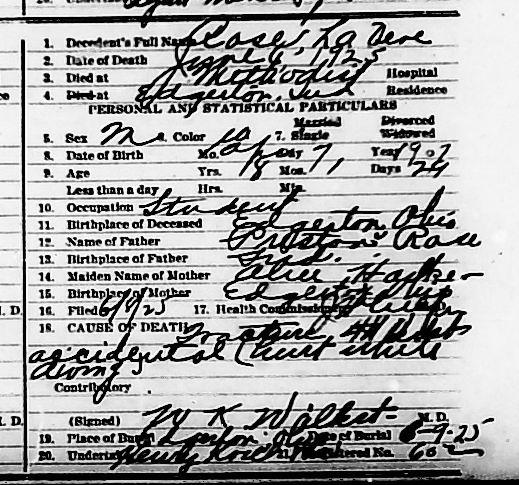 1. Decedent's Full Name Rose, La Vere
2. Date of Death June 6, 1925
3. Died at Methodist Hospital
4. Died at Edgerton, Ind Residence
PERSONAL AND STATISTICAL PARTICULARS
5. Sex M 6. Color W 7. Single Married Widowed Divorced
8. Date of Birth Mo. Day 7, Year 1907
9. Age Yrs. 18 Mos. Days 29
Less than a day Hrs. Min.
10. Occupation Student
11. Birthplace of Deceased Edgerton Ohio
12. Name of Father Preston Rose
13. Birthplace of Father Ind.
14. Maiden Name of Mother Alice
15. Birthplace of Mother Edgerton
16. Filed 25 17. Health Commissioner
18. CAUSE OF DEATH Fracture 4th
accidental (hurt while
diving)
Contributory
(Signed) W K M. D.
19. Place of Burial Edgerton, Date of Burial 6-9-25
20. Undertaker Henry 21. Registered No. 602